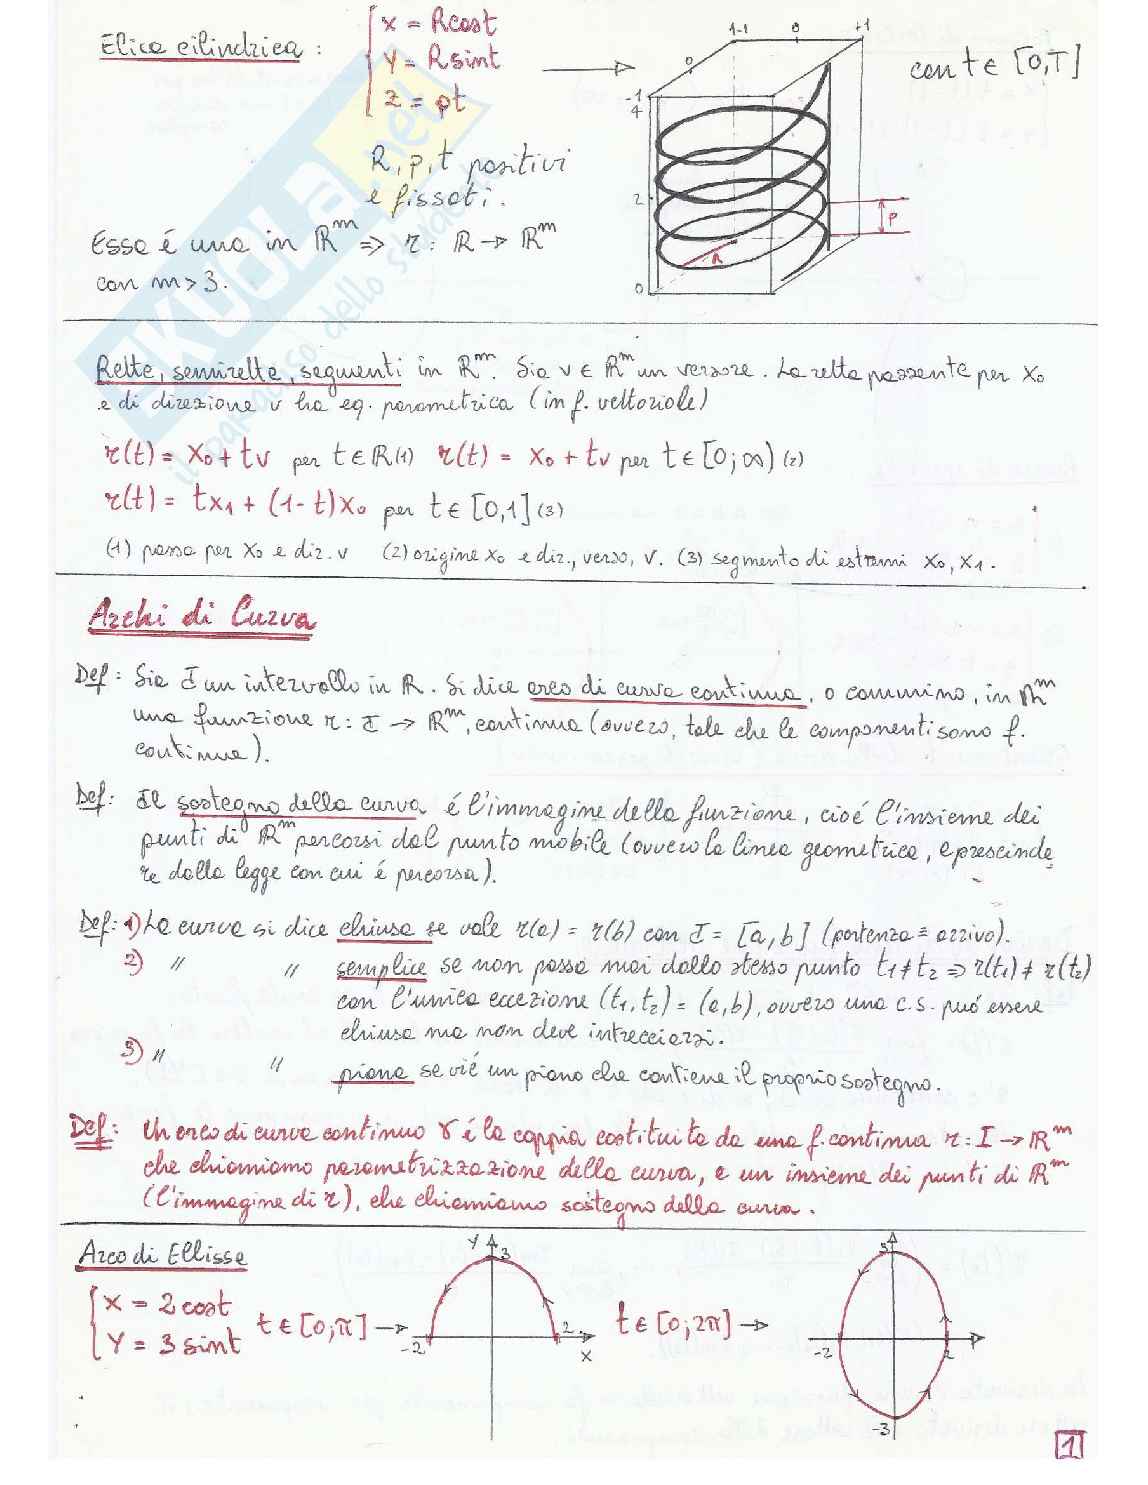 Elica cilindrica : { x = Rcost
y = Rsint
z = pt
con t ∈ [0,T]
-1 0 +1
0
-1
4
2
0
P
R
R, p, t positivi
e fissati.
Essa é una in ℝᵐ => r : ℝ → ℝᵐ
con m > 3.
SKUOLA.net
il paradiso dello studente
Rette, semirette, segmenti in ℝᵐ. Sia v ∈ ℝᵐ un versore. La retta passante per x₀
e di direzione v ha eq. parametrica (in f. vettoriale)
r(t) = x₀ + tv per t ∈ ℝ (1) r(t) = x₀ + tv per t ∈ [0; ∞) (2)
r(t) = tx₁ + (1-t)x₀ per t ∈ [0,1] (3)
(1) passa per x₀ e diz. v (2) origine x₀ e diz., verso, v. (3) segmento di estremi x₀, x₁.
Archi di Curva
Def: Sia I un intervallo in ℝ. Si dice arco di curva continua, o cammino, in ℝᵐ
una funzione r : I → ℝᵐ, continua (ovvero, tale che le componenti sono f.
continue).
Def: Il sostegno della curva é l'immagine della funzione, cioé l'insieme dei
punti di ℝᵐ percorsi dal punto mobile (ovvero la linea geometrica, a prescinde
re dalla legge con cui é percorsa).
Def: 1) La curva si dice chiusa se vale r(a) = r(b) con I = [a,b] (partenza = arrivo).
2) " " semplice se non passa mai dallo stesso punto t₁ ≠ t₂ => r(t₁) ≠ r(t₂)
con l'unica eccezione (t₁,t₂) = (a,b), ovvero una c.s. può essere
chiusa ma non deve intrecciarsi.
3) " " piana se vié un piano che contiene il proprio sostegno.
Def: Un arco di curva continuo γ é la coppia costituita da una f. continua r : I → ℝᵐ
che chiamiamo parametrizzazione della curva, e un insieme dei punti di ℝᵐ
(l'immagine di r), che chiamiamo sostegno della curva.
Arco di Ellisse
{ x = 2 cost
y = 3 sint
t ∈ [0;π] →
y 3
-2 2 x
t ∈ [0;2π] →
3
-2 2
-3
1